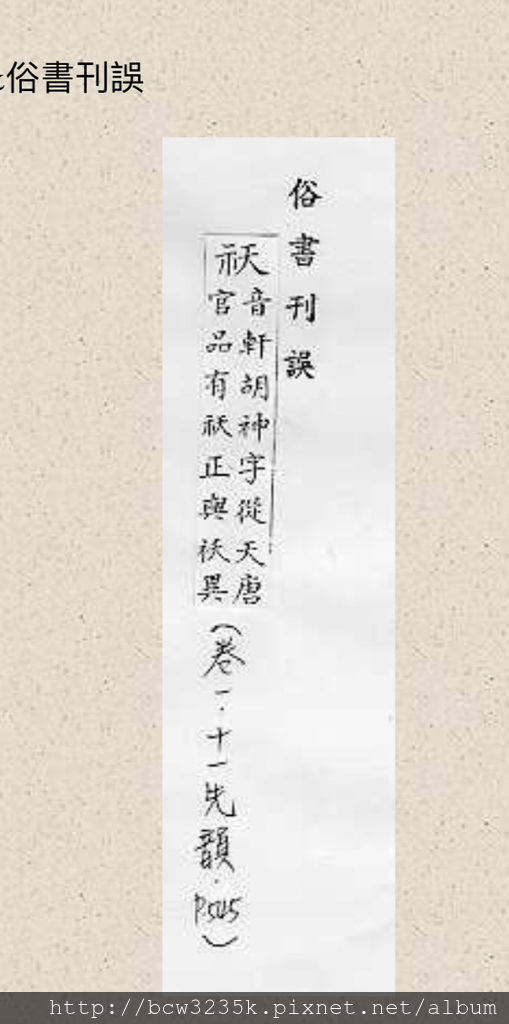 俗書刊誤
俗書刊誤
祆
音軒胡神字從天唐
官品有祆正與祅異
(卷一.十一先韻.P545)
http://bcw3235k.pixnet.net/album